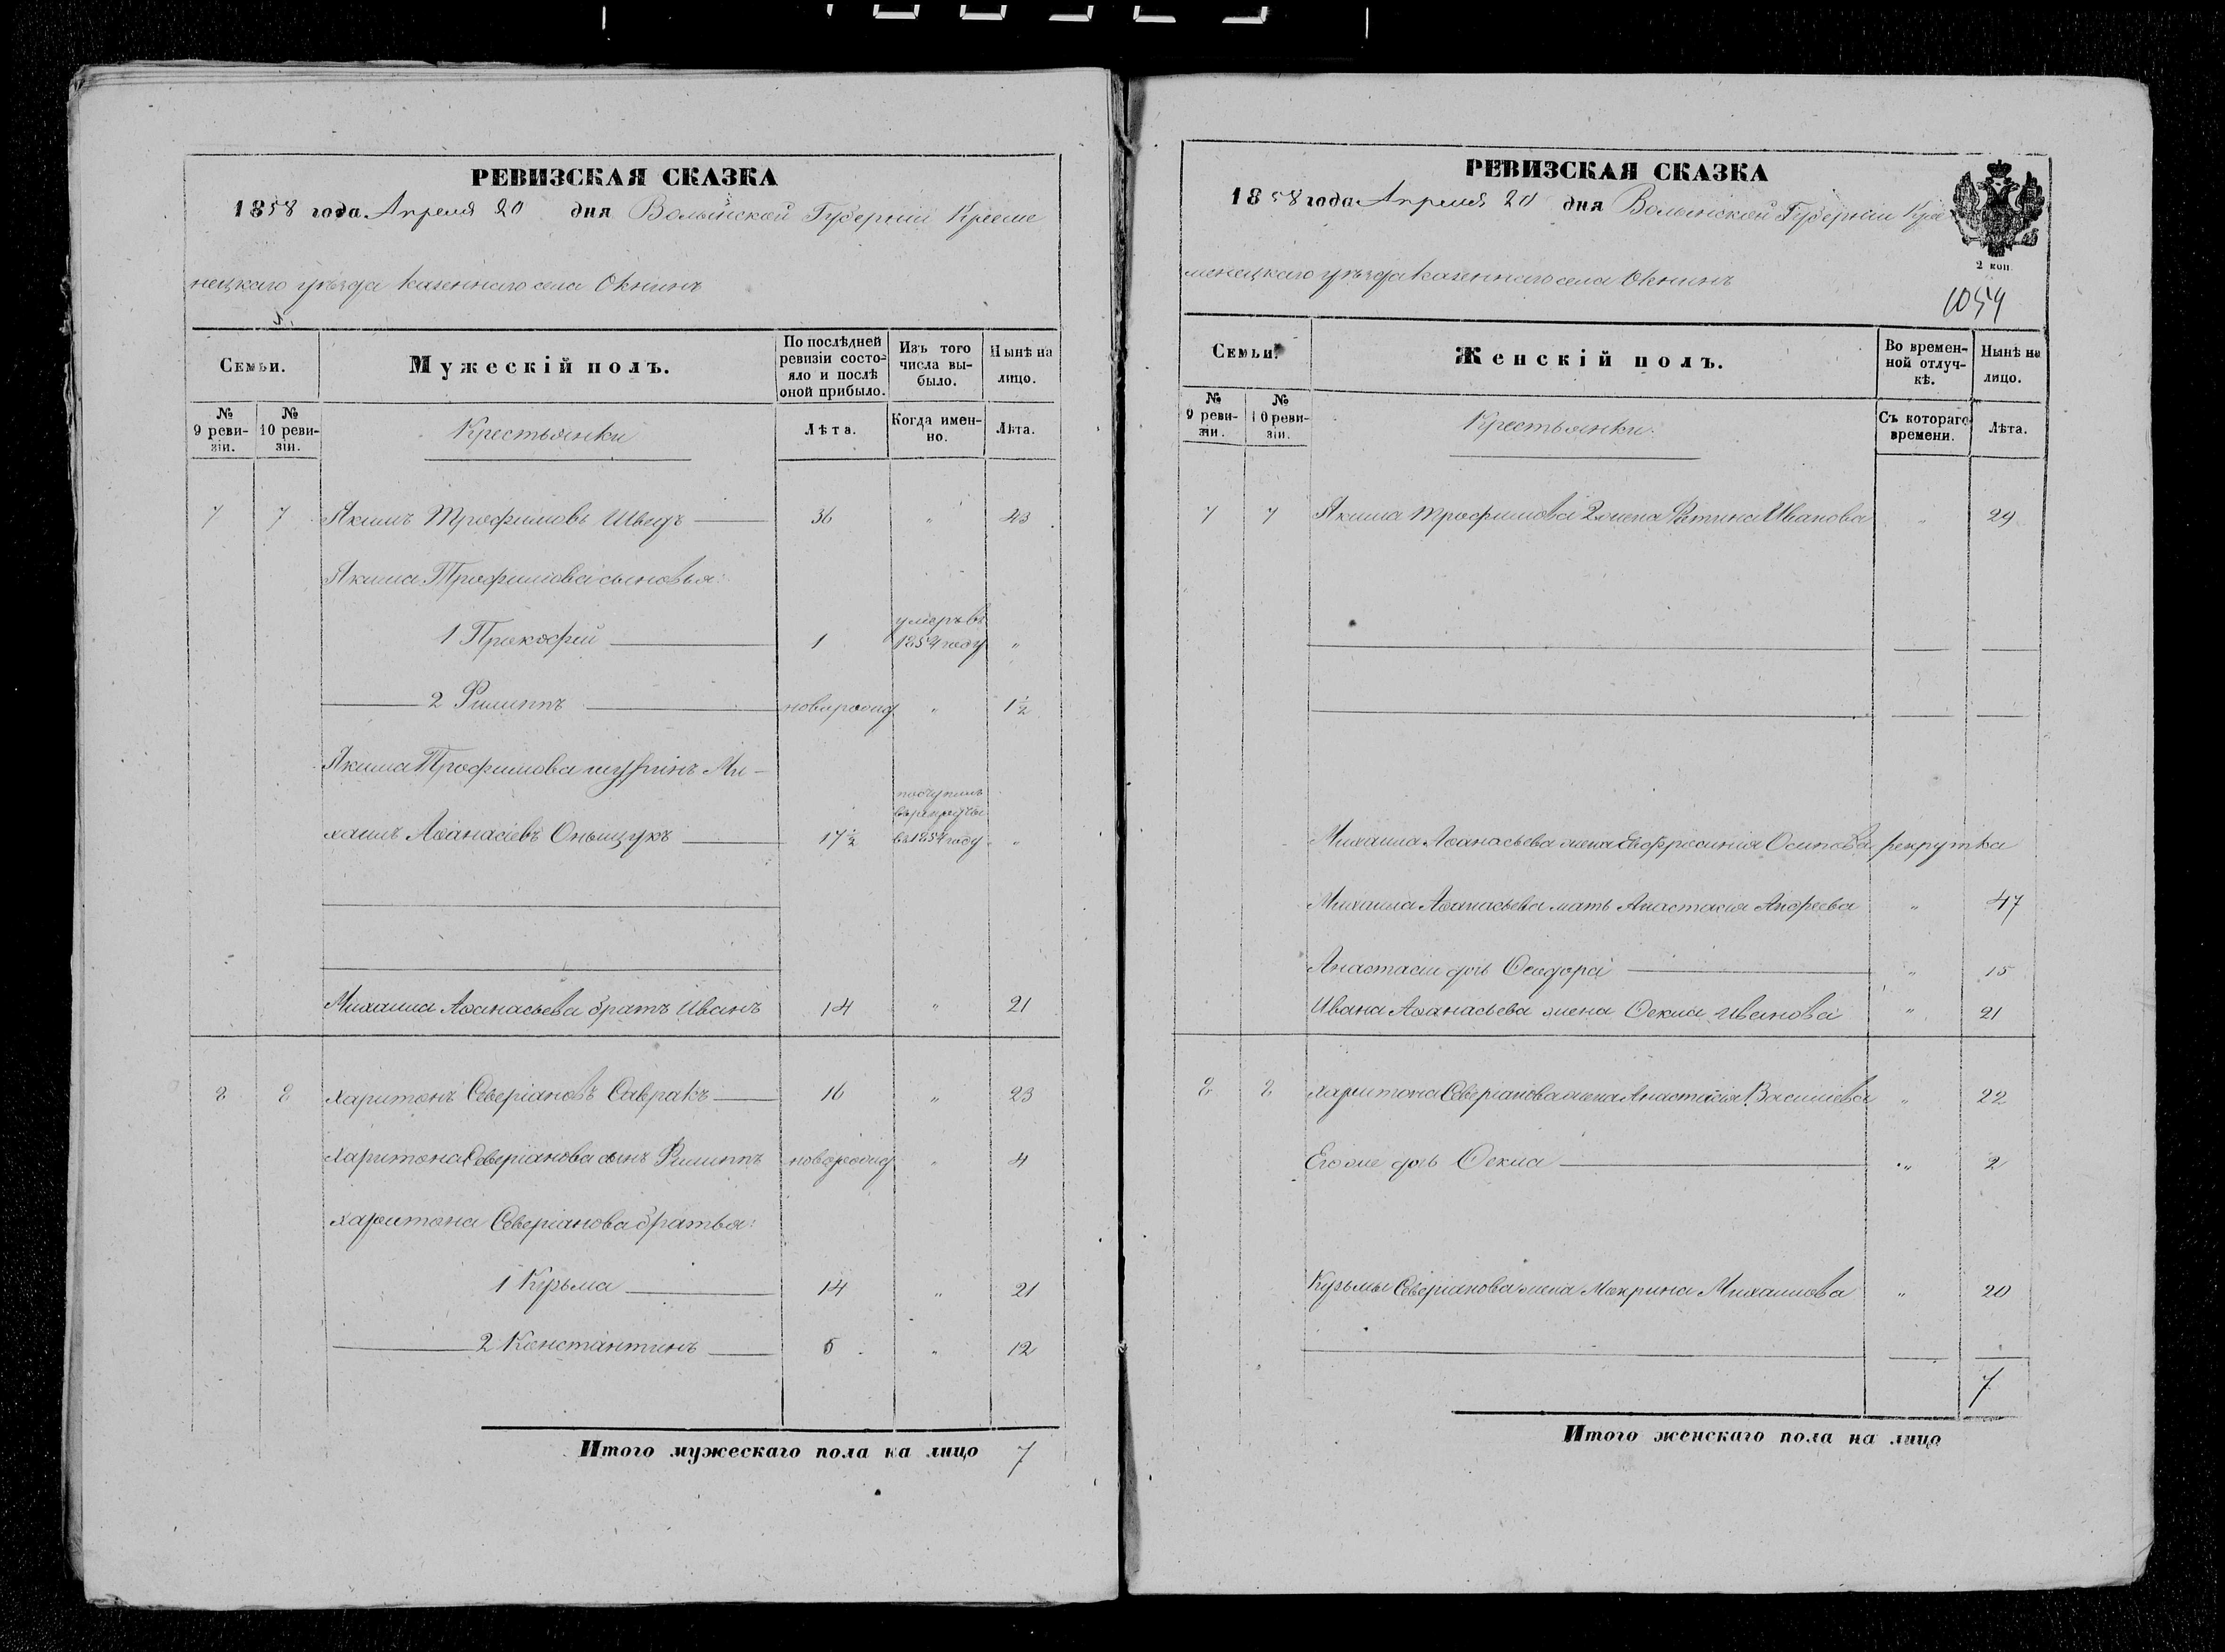 РЕВИЗСКАЯ СКАЗКА
1858 года Апреля 20 дня Волынской Губернiи Креме
нецкаго уѣзда казеннаго села Окнинъ
Семьи.
Мужескій полъ.
По послѣдней ревизіи состояло и послѣ оной прибыло.
Изъ того числа выбыло.
Нынѣ на лицо.
№ 9 ревизіи.
№ 10 ревизіи.
Крестьянки
Лѣта.
Когда именно.
Лѣта.
7 7 Якимъ Трофимовъ Шведъ 36 " 43
Якима Трофимова сыновья:
1 Прокофій 1 умеръ въ 1854 году "
2 Филиппъ новорожд " 1½
Якима Трофимова шуринъ Ми-
хаилъ Аѳанасіевъ Онищукъ 17½ поступилъ въ рекруты въ 1854 году "
Михаила Аѳанасьева братъ Иванъ 14 " 21
8 8 Харитонъ Северіановъ Савракъ 16 " 23
Харитона Северіанова сынъ Филиппъ новорожд " 4
Харитона Северіанова братья:
1 Кузьма 14 " 21
2 Константинъ 5 " 12
Итого мужескаго пола на лицо 7
РЕВИЗСКАЯ СКАЗКА
1858 года Апреля 20 дня Волынской Губерніи Кре
менецкаго уѣзда казеннаго села Окнинъ
2 коп
1054
Семьи.
Женскій полъ.
Во временной отлучкѣ.
Нынѣ на лицо.
№ 9 ревизіи.
№ 10 ревизіи.
Крестьянки.
Съ котораго времени.
Лѣта.
7 7 Якима Трофимова 2 жена Фетина Иванова " 29
Михаила Аѳанасьева жена Евфросинія Осипова рекрутка
Михаила Аѳанасьева мать Анастасія Андреева " 47
Анастасіи дочь Ѳеодора " 15
Ивана Аѳанасьева жена Ѳекла Иванова " 21
8 8 Харитона Северіанова жена Анастасія Василіева " 22
Его же дочь Ѳекла " 2
Кузьмы Северіанова жена Макрина Михаилова " 20
7
Итого женскаго пола на лицо